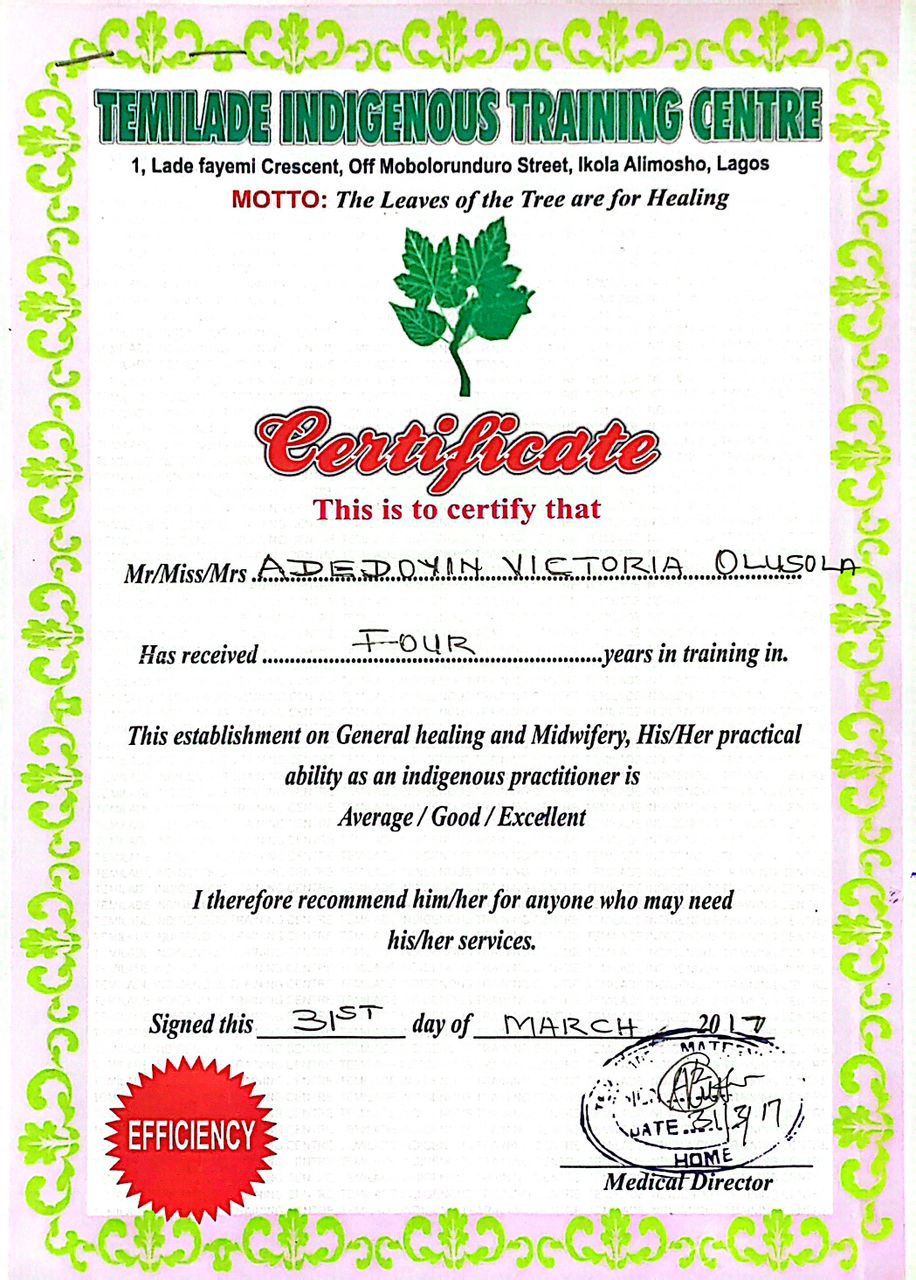 TEMILADE INDIGENOUS TRAINING CENTRE
1, Lade fayemi Crescent, Off Mobolorunduro Street, Ikola Alimosho, Lagos
MOTTO: The Leaves of the Tree are for Healing
Certificate
This is to certify that
Mr/Miss/Mrs ADEDOYIN VICTORIA OLUSOLA
Has received FOUR years in training in.
This establishment on General healing and Midwifery, His/Her practical
ability as an indigenous practitioner is
Average / Good / Excellent
I therefore recommend him/her for anyone who may need
his/her services.
Signed this 31ST day of MARCH 2017
EFFICIENCY
DATE 31/3/17
HOME
Medical Director